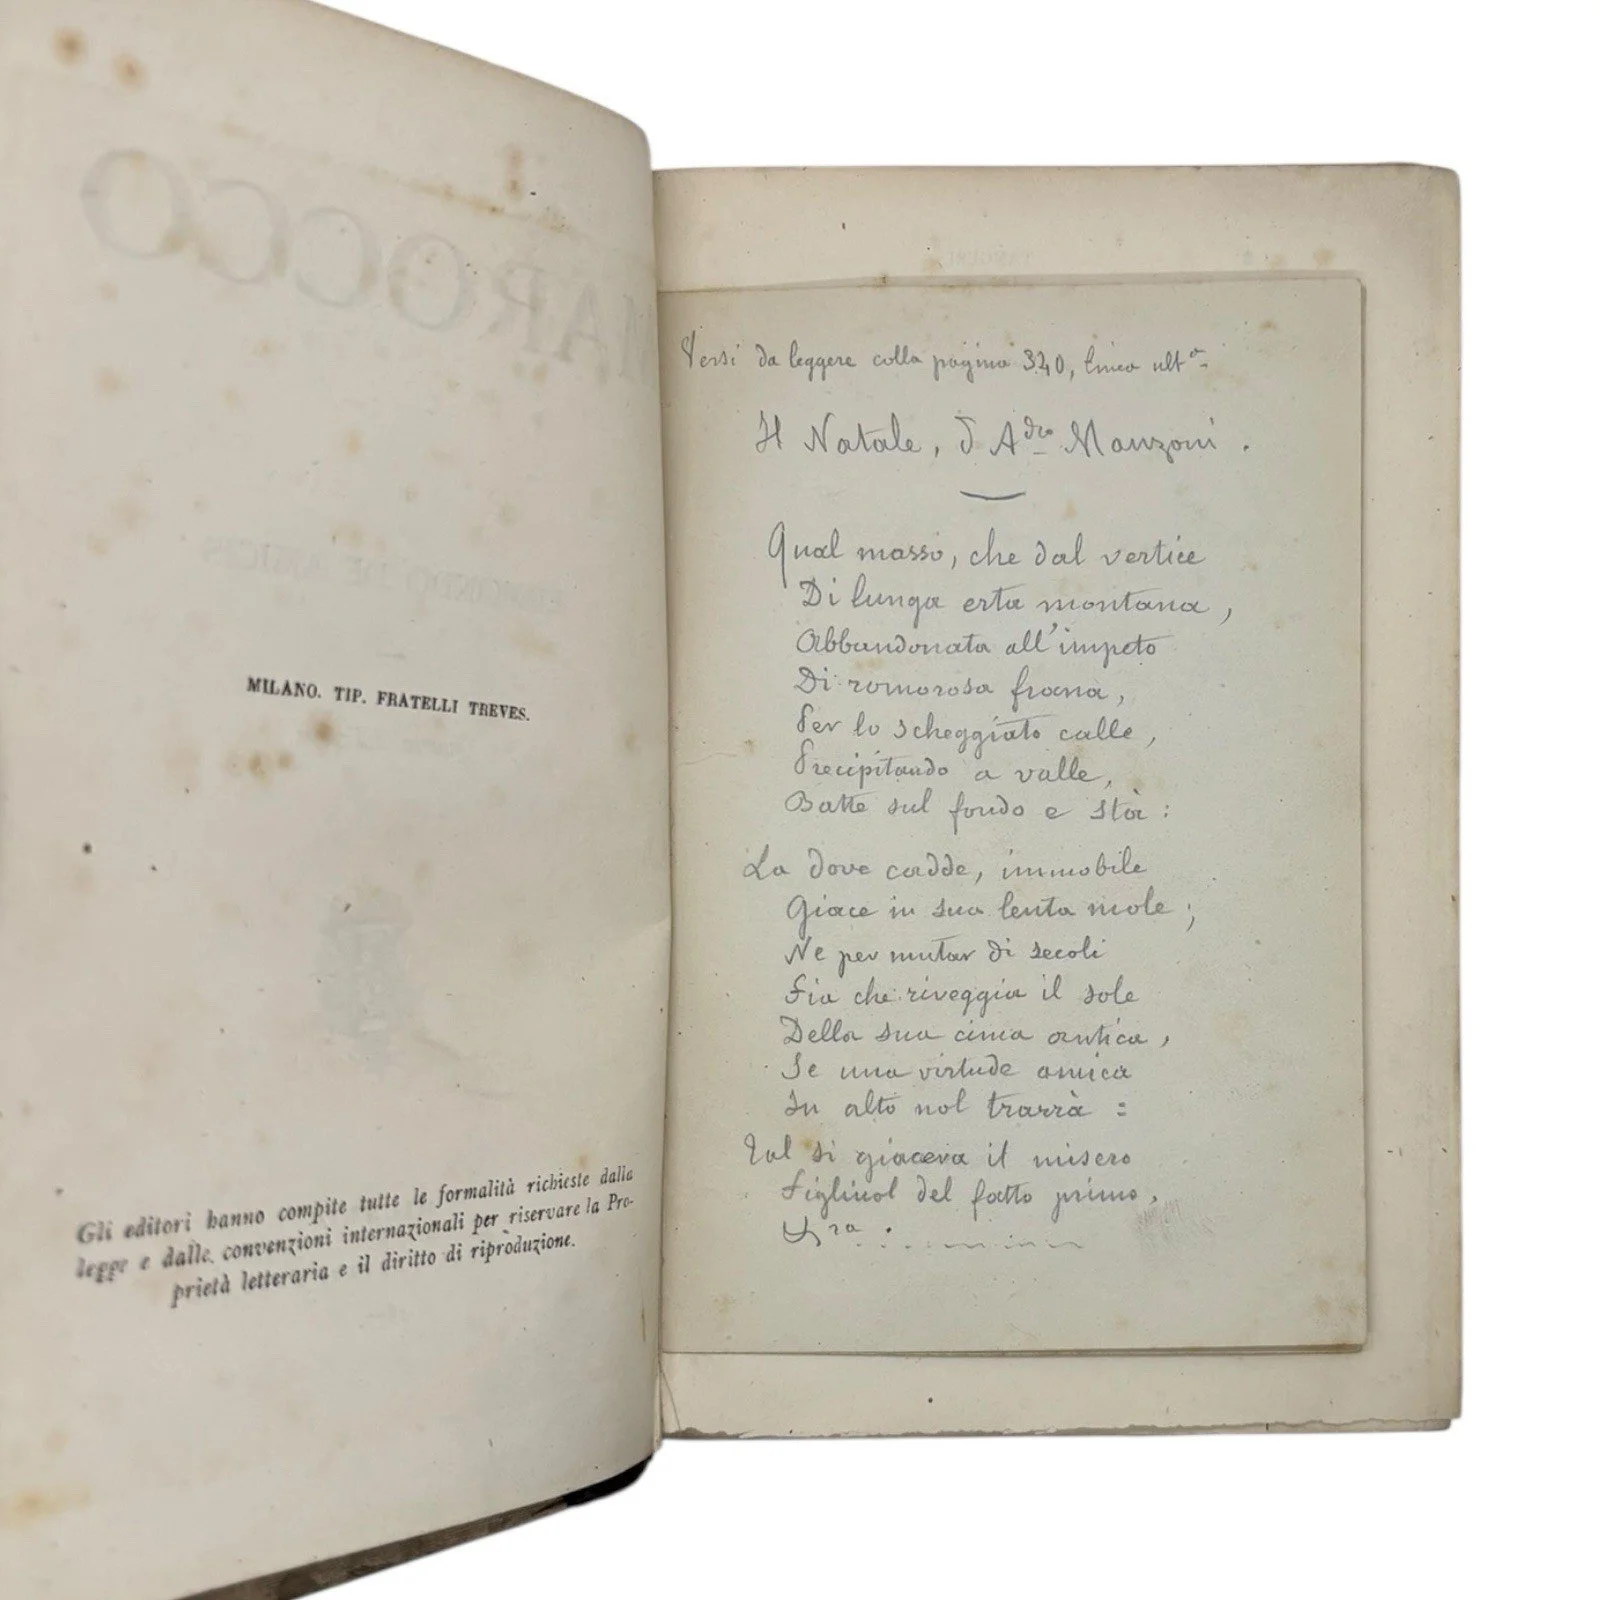 MAROCCO
EDMONDO DE AMICIS
MILANO. TIP. FRATELLI TREVES.
Gli editori hanno compite tutte le formalità richieste dalla
legge e dalle convenzioni internazionali per riservare la Pro-
prietà letteraria e il diritto di riproduzione.
Versi da leggere colla pagina 340, linea ultª
Il Natale, d'Adro Manzoni.
Qual masso, che dal vertice
Di lunga erta montana,
Abbandonata all'impeto
Di romorosa frana,
Per lo scheggiato calle,
Precipitando a valle,
Batte sul fondo e stà:
La dove cadde, immobile
Giace in sua lenta mole;
Ne per mutar di secoli
Fia che riveggia il sole
Della sua cima antica,
Se una virtude amica
In alto nol trarrà:
Tal si giaceva il misero
Figliuol del fatto primo,